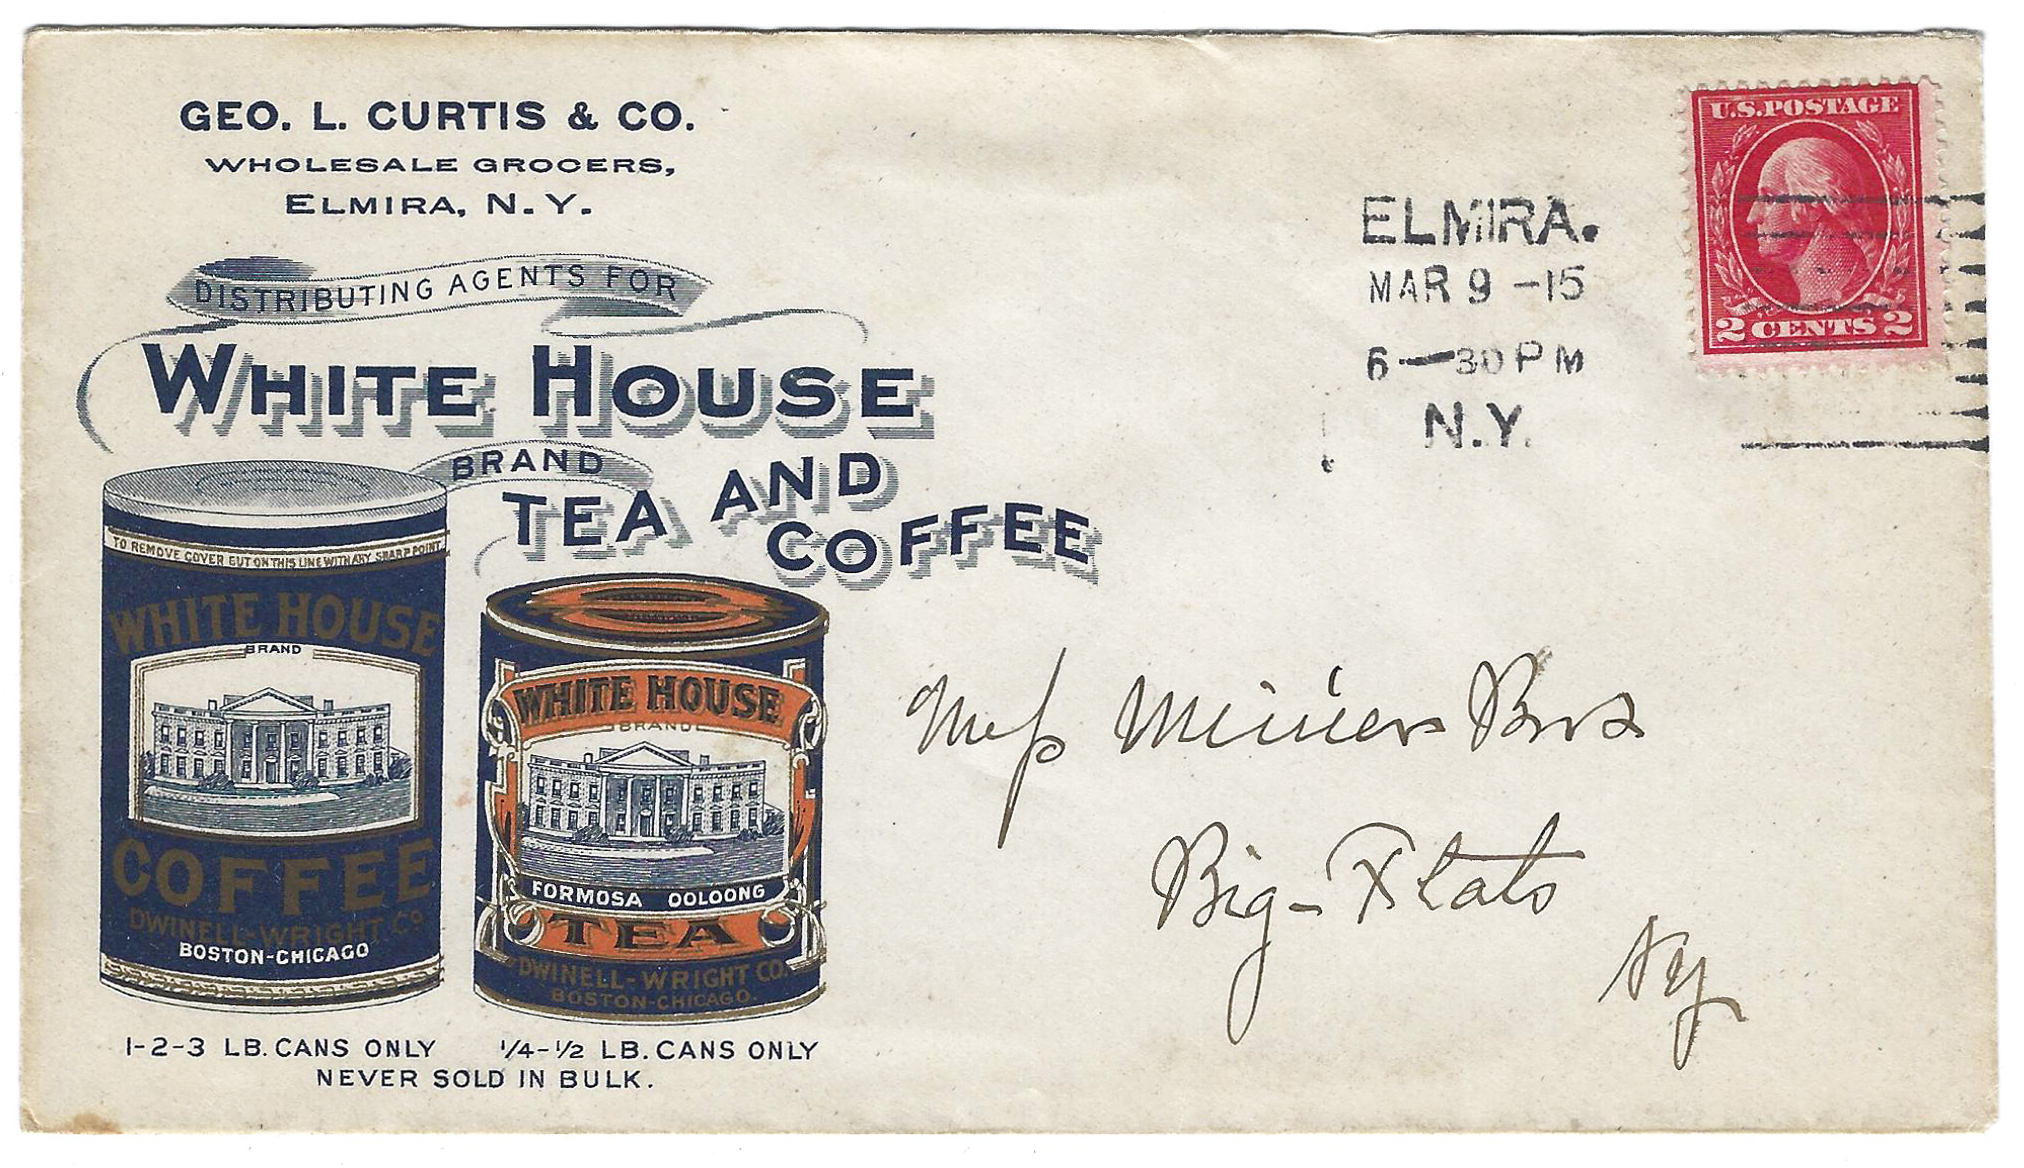 GEO. L. CURTIS & CO.
WHOLESALE GROCERS,
ELMIRA, N.Y.
DISTRIBUTING AGENTS FOR
WHITE HOUSE
BRAND
TEA AND
COFFEE
TO REMOVE COVER CUT ON THIS LINE WITH ANY SHARP POINT
WHITE HOUSE
BRAND
COFFEE
DWINELL-WRIGHT CO.
BOSTON-CHICAGO
WHITE HOUSE
BRAND
FORMOSA OOLOONG
TEA
DWINELL-WRIGHT CO.
BOSTON-CHICAGO.
1-2-3 LB. CANS ONLY
1/4-1/2 LB. CANS ONLY
NEVER SOLD IN BULK.
ELMIRA.
MAR 9 -15
6-30 PM
N.Y.
U.S. POSTAGE
2 CENTS 2
Miniers Bros
Big-Flats
NY